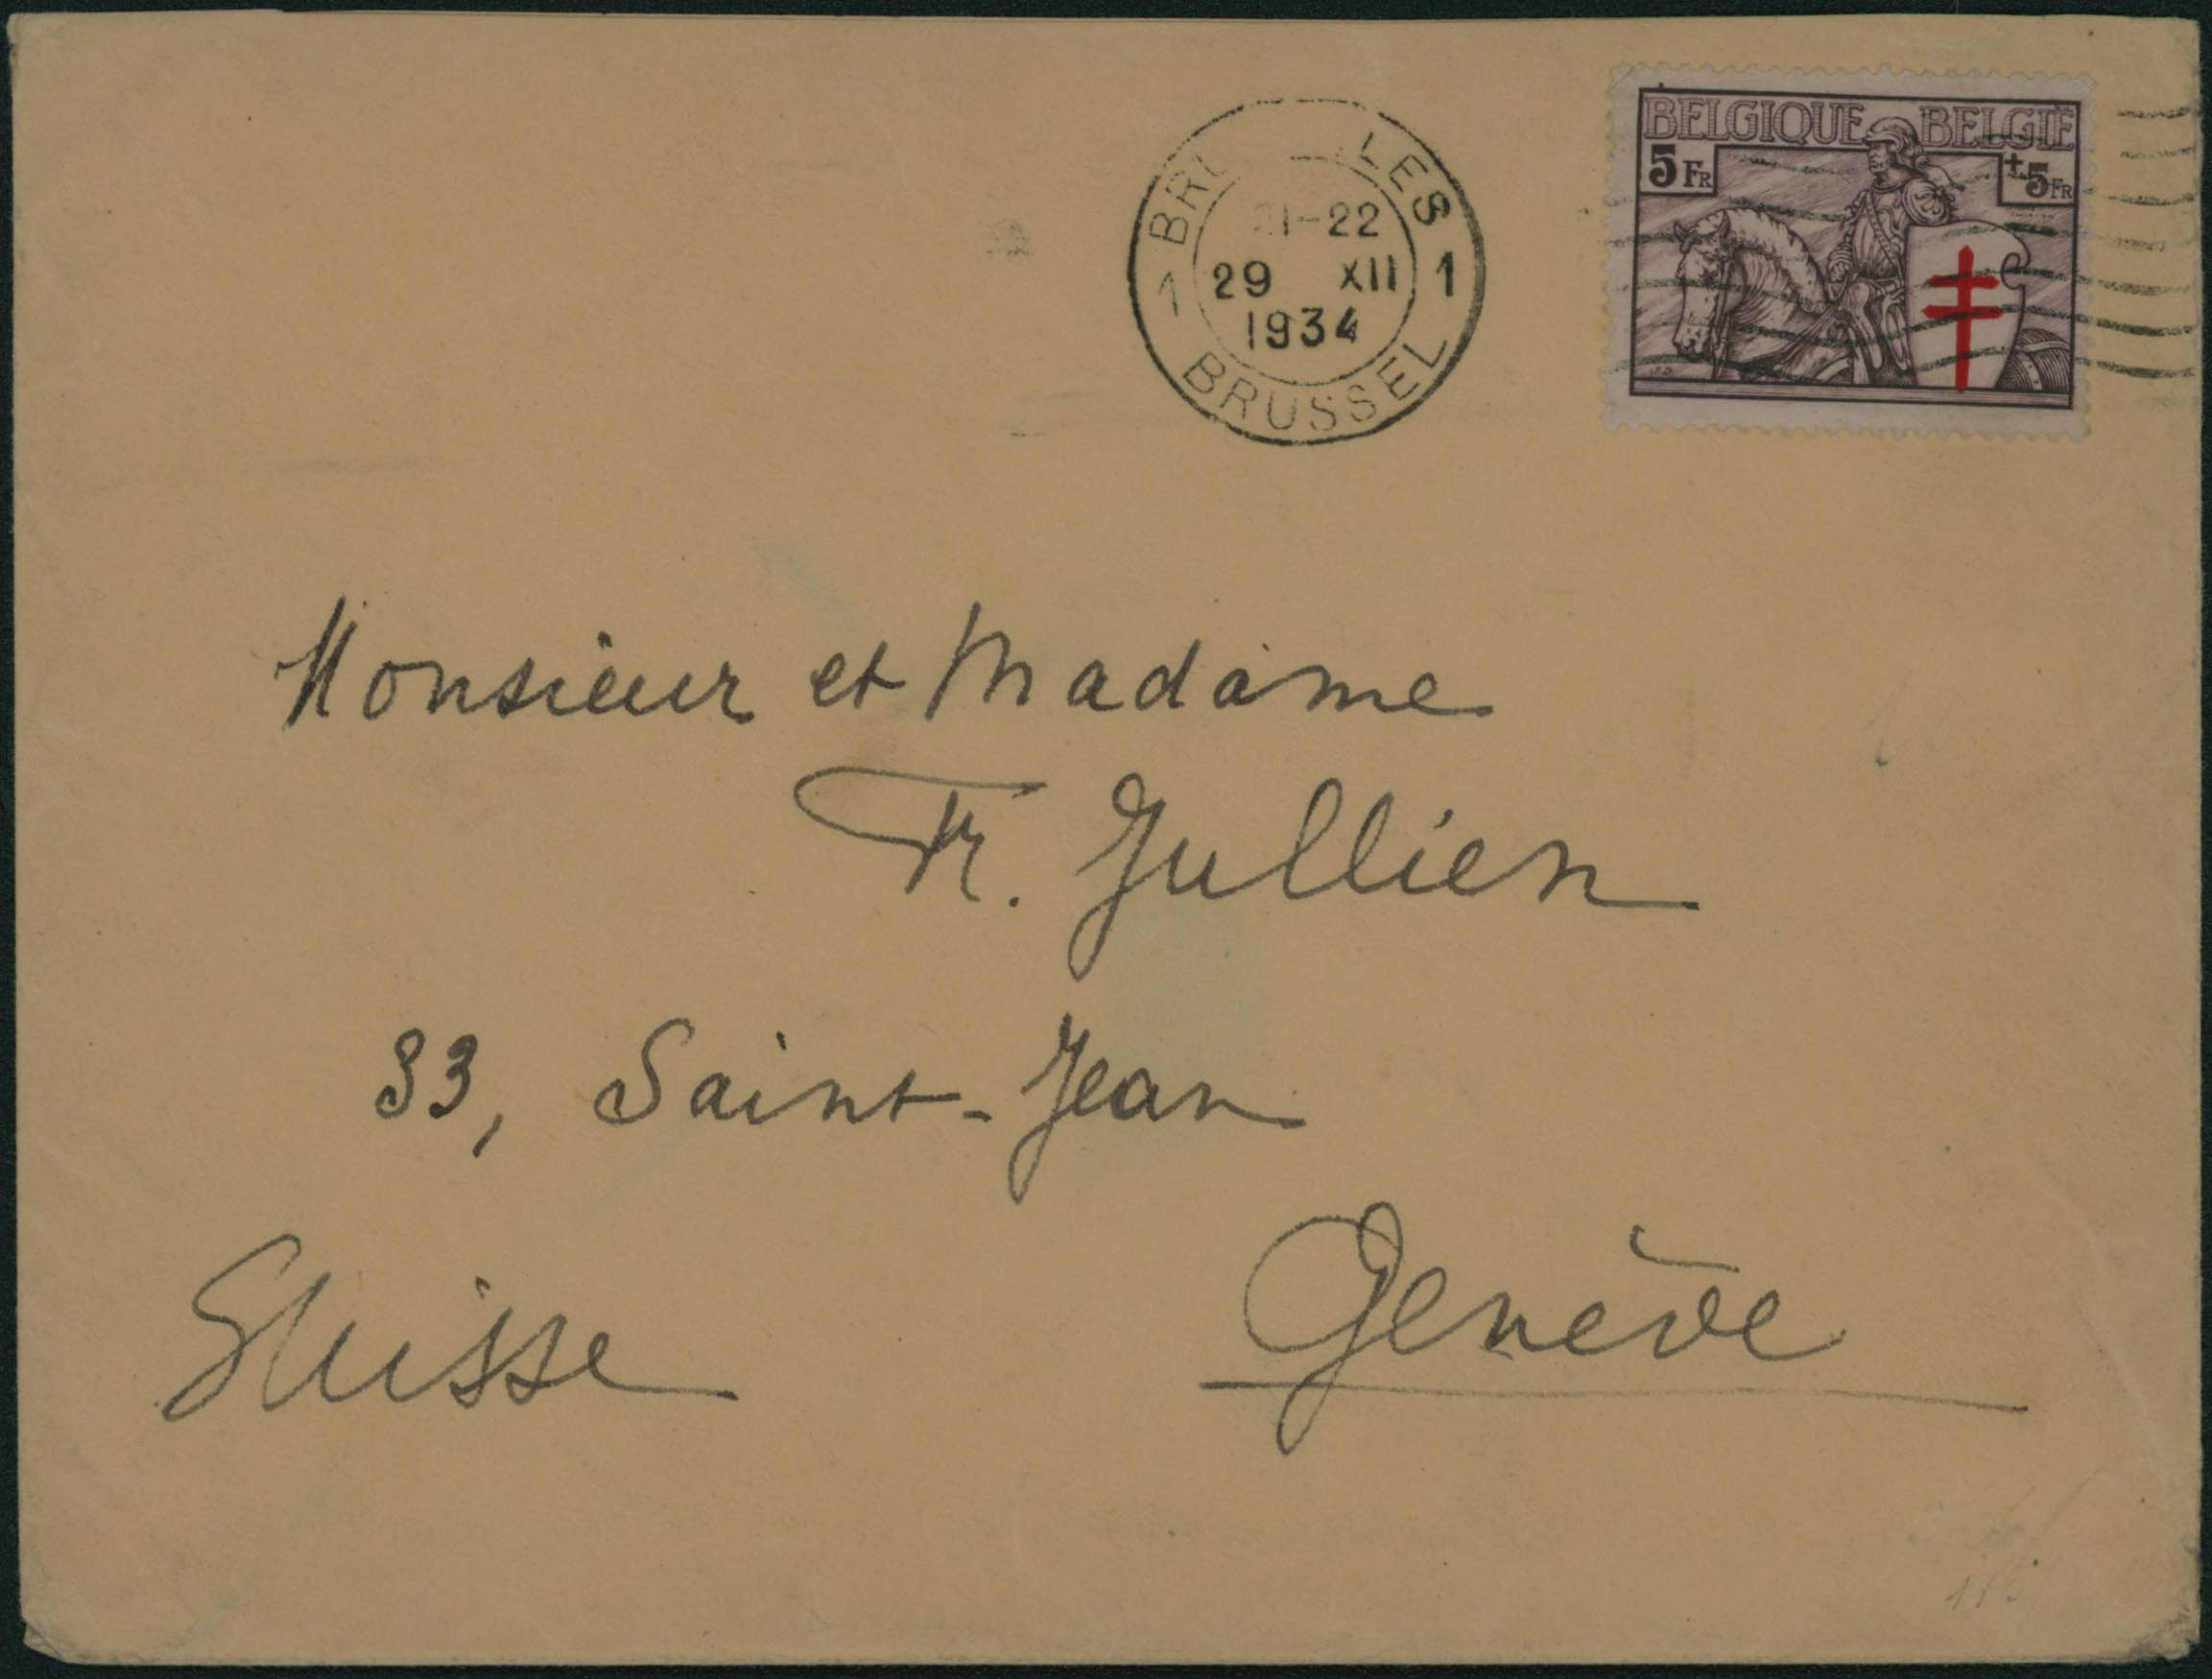 BRU LES
1 1
21-22
29 XII
1934
BRUSSEL
BELGIQUE BELGIË
5 FR +5 FR
Monsieur et Madame
Fr. Jullien
33, Saint-Jean
Genève
Suisse